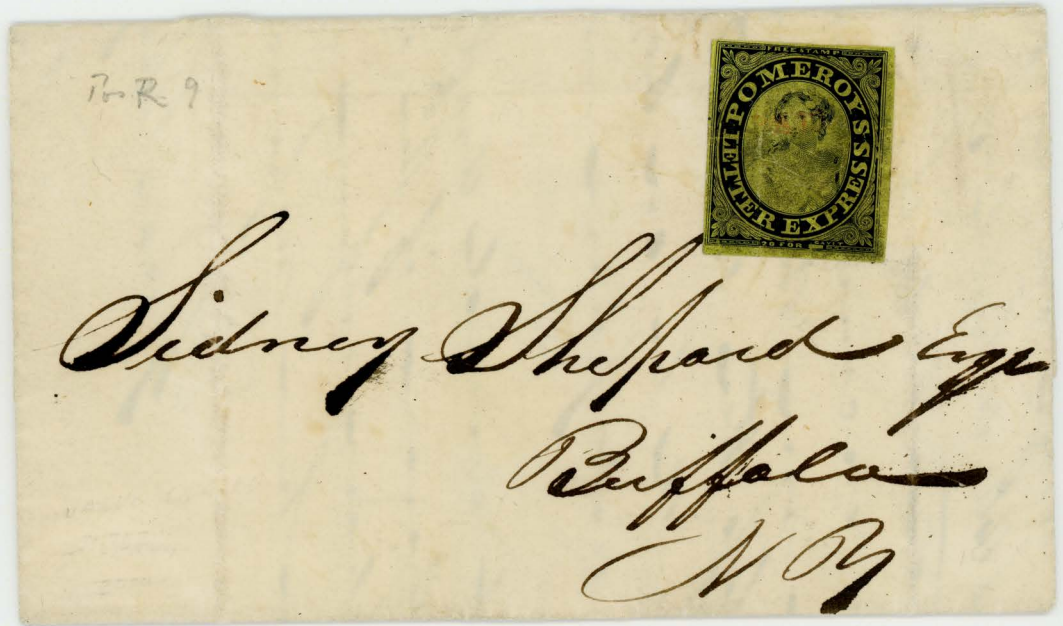 9
FREE STAMP
POMEROY'S LETTER EXPRESS
20 FOR
Sidney Shepard Esqr
Buffalo
N Y